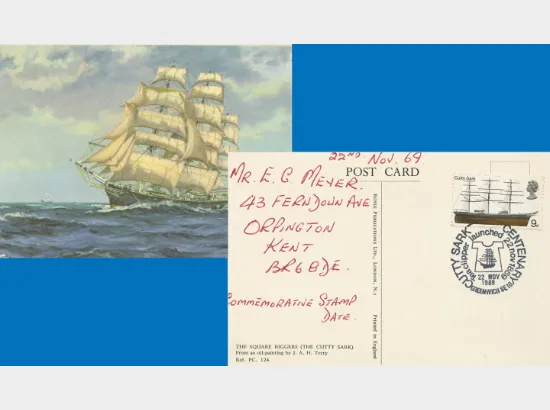 22ND NOV. 69.
POST CARD
MR. E. G. MEYER.
43 FERNDOWN AVE
ORPINGTON
KENT
BR6 8DE.
COMMEMORATIVE STAMP
DATE.
THE SQUARE RIGGERS (THE CUTTY SARK)
From an oil-painting by J. A. H. Terry
Ref. PC. 126
Printed in England
Cutty Sark
9d
CUTTY SARK CENTENARY
Tea clipper launched 22 nov 1869
22 NOV
1969
GREENWICH SE10